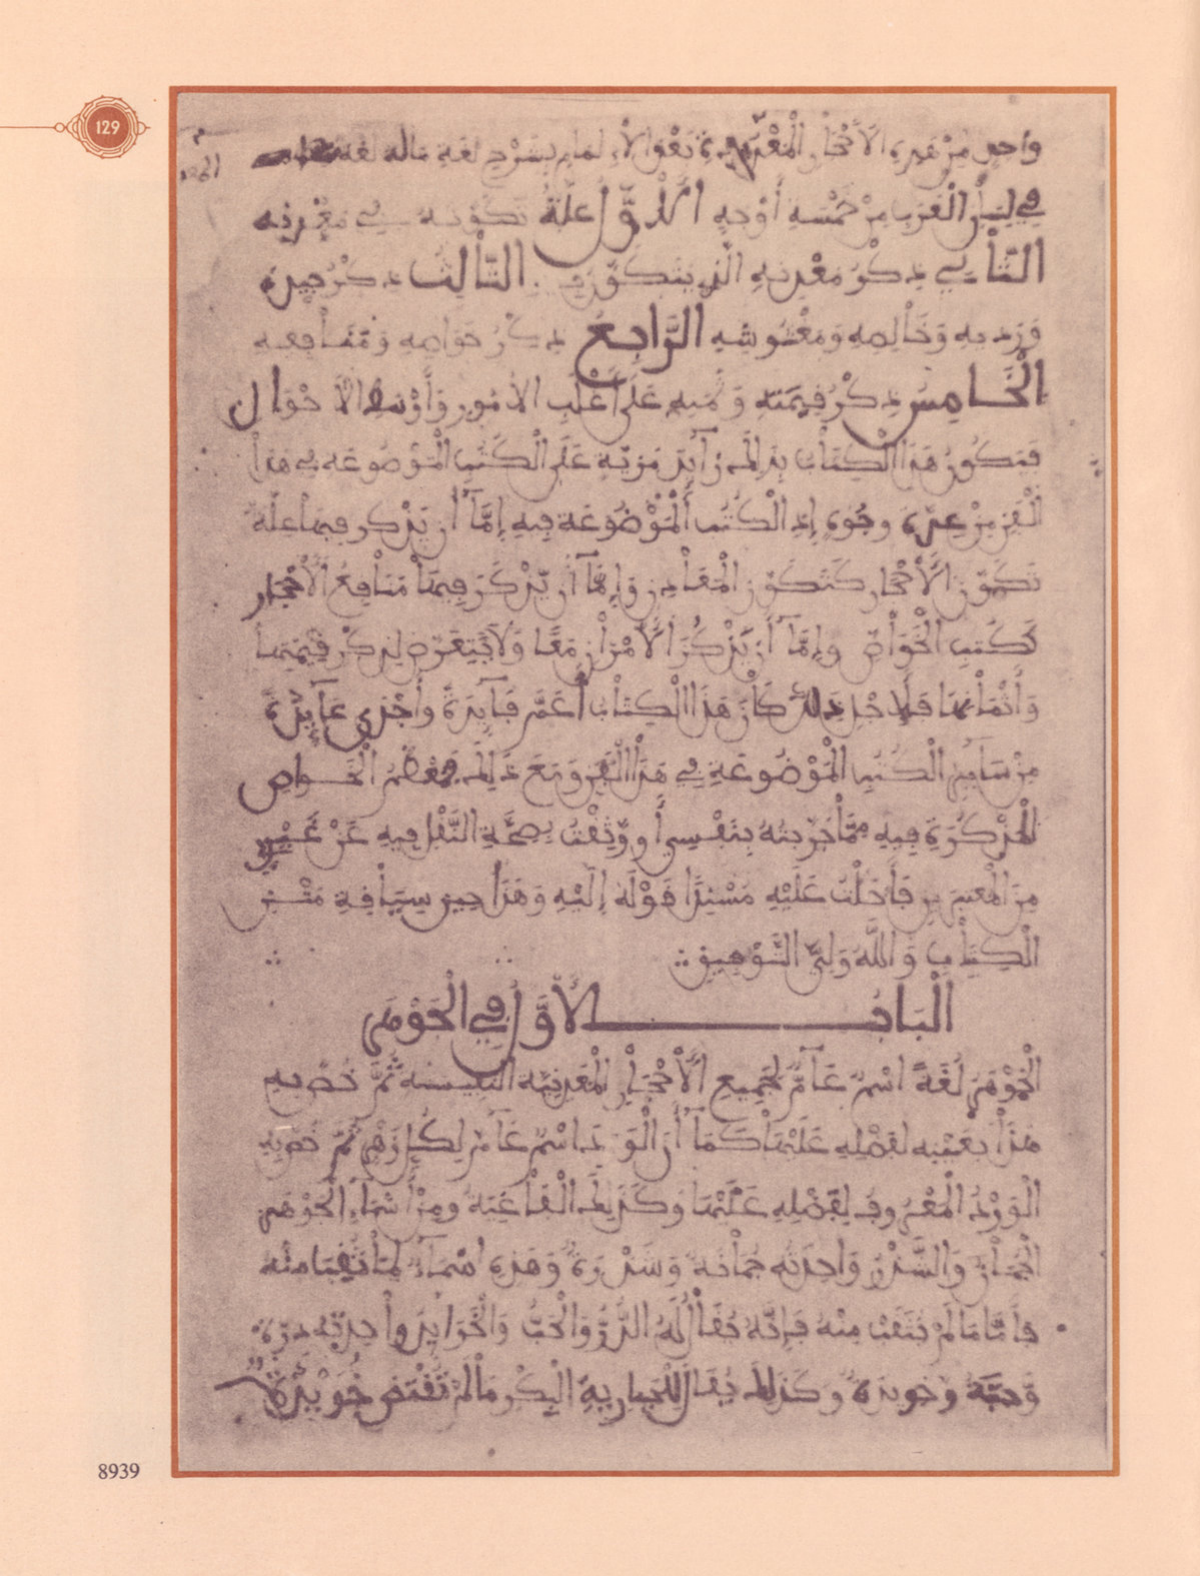 129
واحد من هذه الأحجار المعدنية بعد الإلمام بشرح لغة ماله لغة
في لسان العرب من خمسة أوجه الأَوَّل علة تكونه في معدنه
الثاني ذكر معدنه الذي يتكون فيه الثالث ذكر جيده
ورديه وخالصه ومغشوشه الرَّابع ذكر خواصه ومنافعه
الخامس ذكر قيمته وثمنه على أغلب الأمور وأوسط الأحوال
فيكون هذا الكتاب بذلك زائد مزية على الكتب الموضوعة في هذا
الفن من عدة وجوه إذ الكتب الموضوعة فيه إمّا أن يذكر فيها علة
تكوّن الأحجار ككتكوّن المعادن وإمّا أن يذكر فيها منافع الأحجار
ككتب الخواص وإمّا أن يذكر الأمران معا ولا يتعرض لذكر قيمتها
وأثمانها فلأجل ذلك كان هذا الكتاب أعمّ فائدة وأجدى عائدة
من سائر الكتب الموضوعة في هذا الفن ومع ذلك فمعظم الخواص
المذكورة فيه ممّا جربته بنفسي أو وثقت بصحة النقل فيه عن غيري
من المعتبرين فأحلت عليه مسندا قوله إليه وهذا حين سياقة متن
الكتاب والله وليّ التّوفيق
الباب الأوّل في الجوهر
الجوهر لغة اسم عامّ لجميع الأحجار المعدنيّة النفيسة ثمّ خصّ به
هذا بعينه لفضله عليها كما أن الورد اسم عامّ لكل زهر ثمّ خصّ به
الورد المعروف لفضله عليها وكذلك الفاغية ومن أسماء الجوهر
الجمان والشذر واحدته جمانة وشذرة وهذه أسماء لما ثقب منه
فأمّا ما لم يثقب منه فإنّه يقال له الدّرّ والحبّ والخرايد واحدته درّة
وحبّة وخريدة وكذلك يقال للجارية البكر ما لم تفتض خريدة
8939